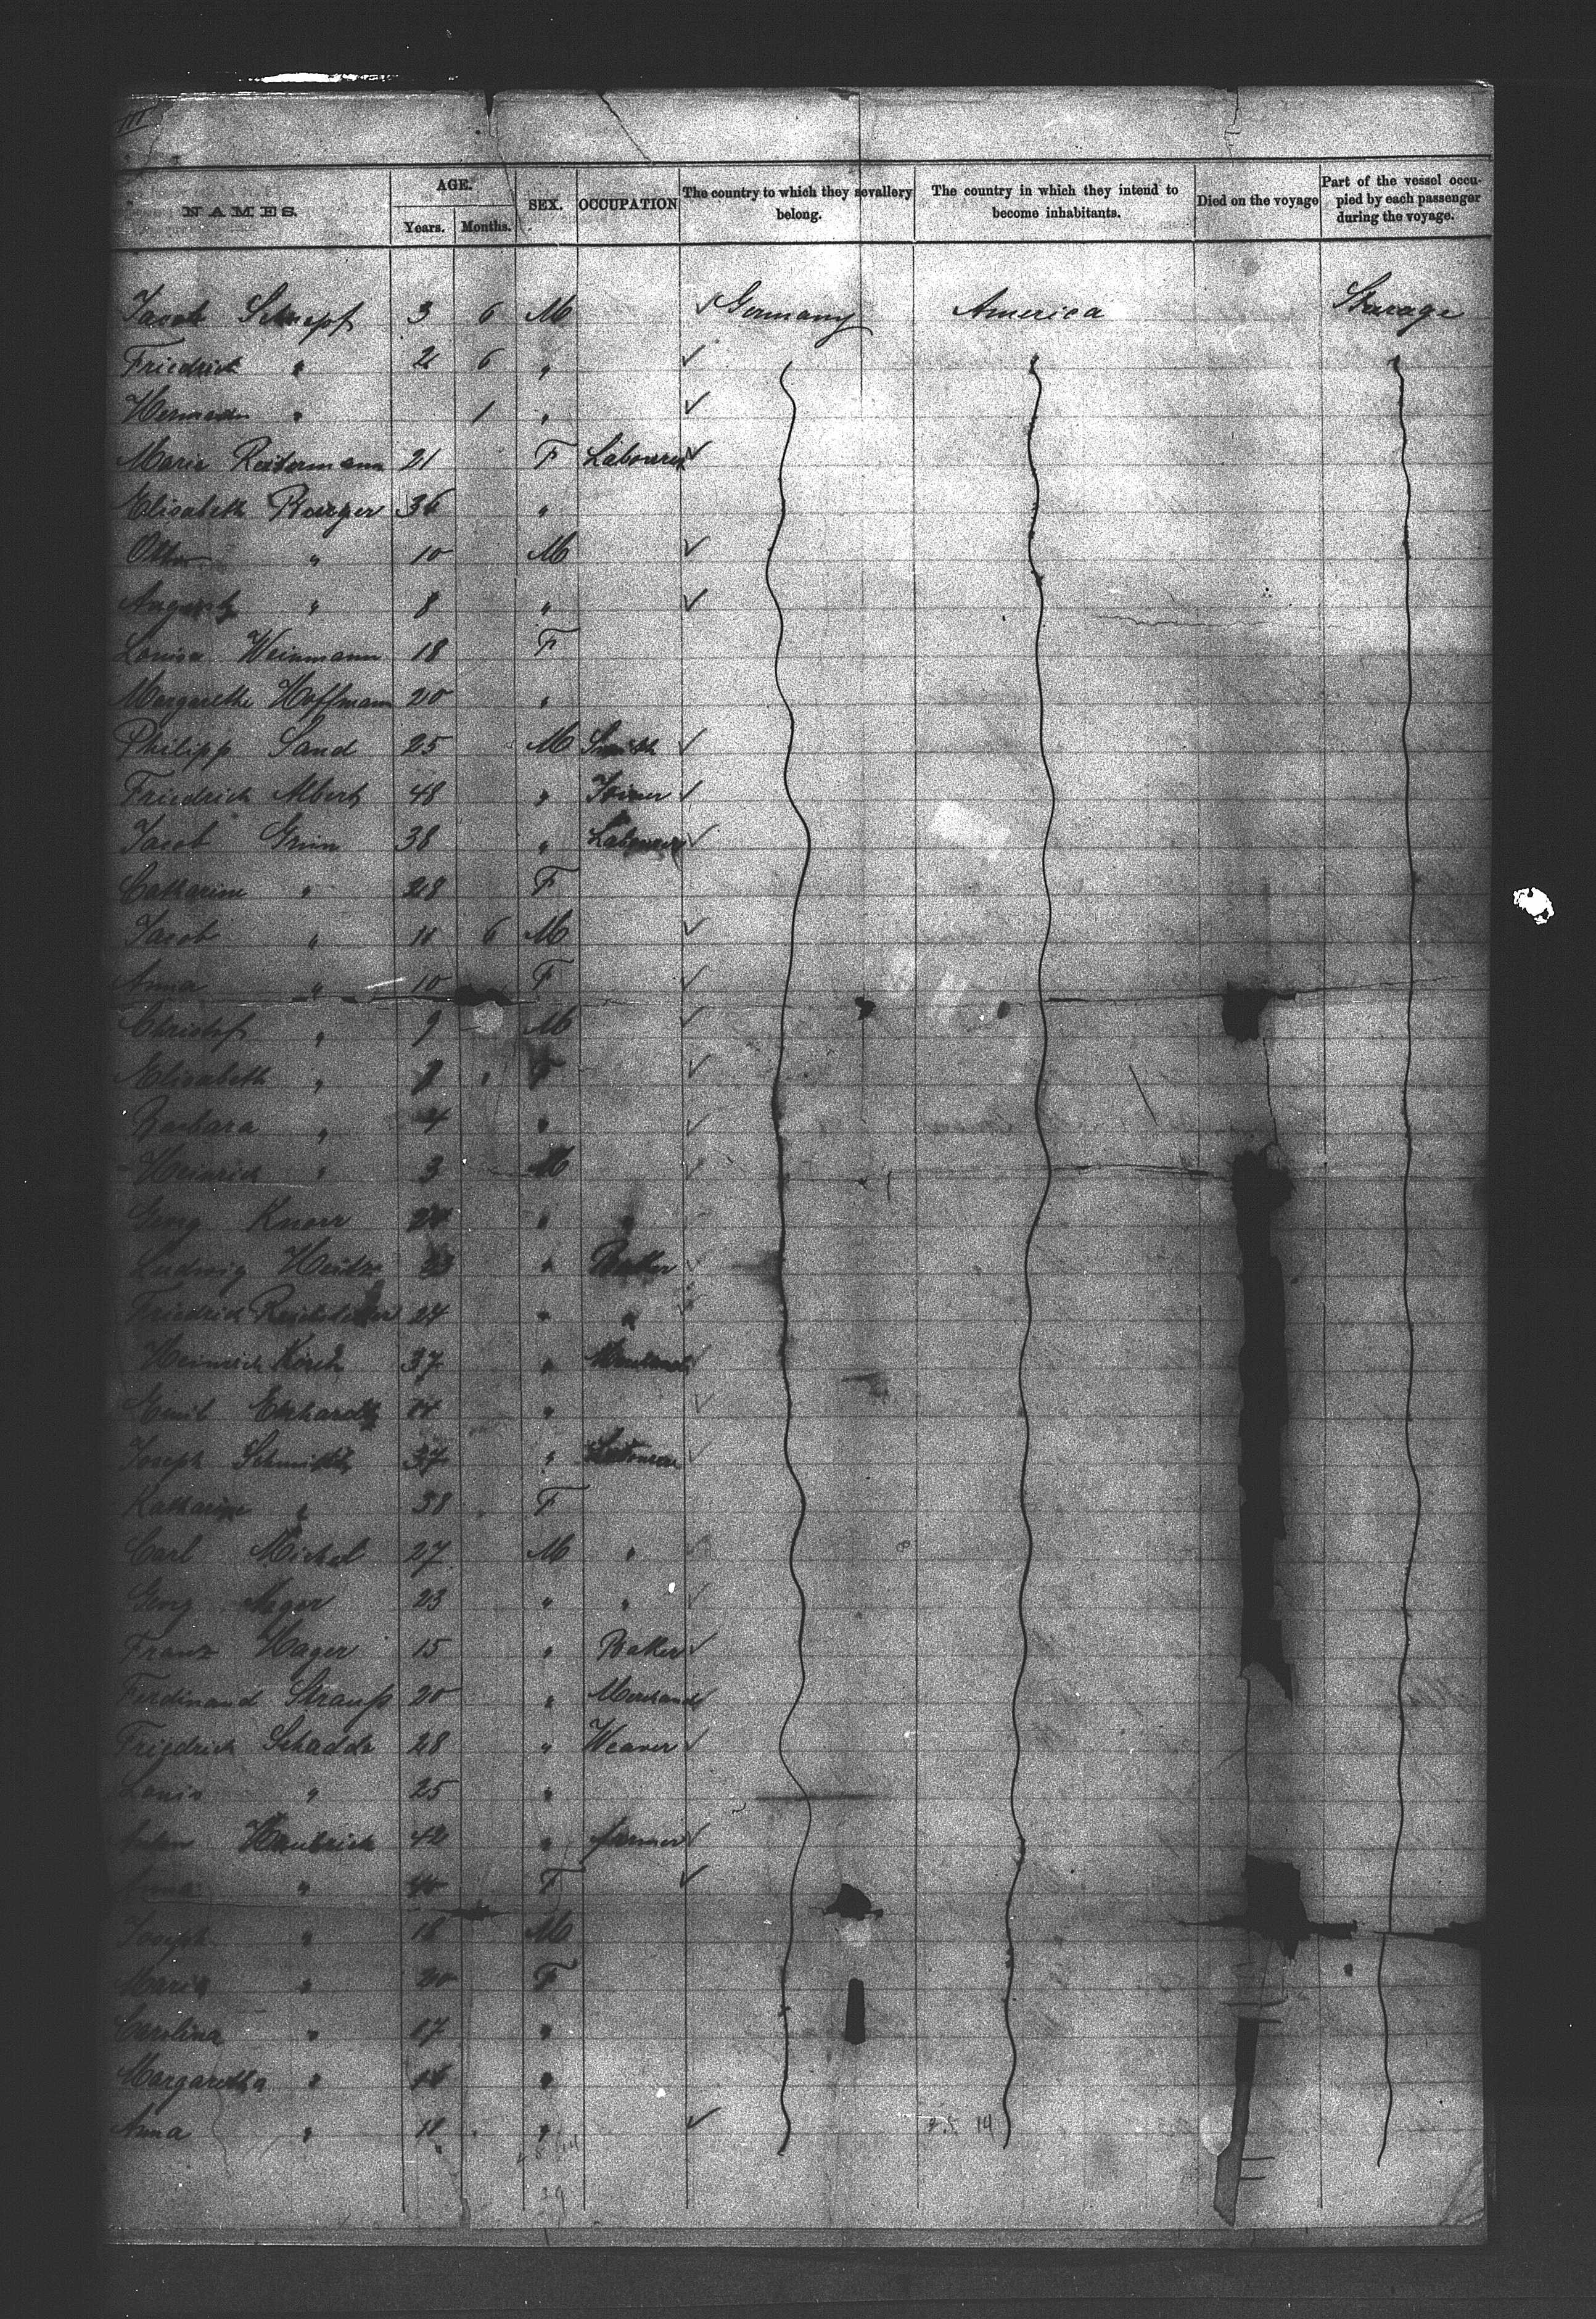 III
NAMES. AGE. SEX. OCCUPATION The country to which they sevallery belong. The country in which they intend to become inhabitants. Died on the voyage Part of the vessel occupied by each passenger during the voyage.
Years. Months.
Jacob Schnepf 3 6 M ✓ Germany America Stearage
Friedrich " 2 6 " ✓
Hermann " 1 " ✓
Marie Reitermann 21 F Labourer ✓
Elisabeth 36 "
Otto " 10 M ✓
August " 8 " ✓
Louisa Weinmann 18 F
Margarethe Hoffmann 20 "
Philipp Sand 25 M Smith ✓
Friedrich Albert 48 " Joiner ✓
Jacob Grim 38 " Labourer ✓
Catharine " 28 F
Jacob " 11 6 M ✓
Anna " 10 F ✓
Christof " 9 M ✓
Elisabeth " F ✓
Barbara " 4 " ✓
Heinrich " 3 M ✓
Georg Knorr " " ✓
Ludwig 23 " Baker ✓
Friedrich 24 " " ✓
Heinrich Kirsch 37 " ✓
Emil Ehrhardt " ✓
Joseph Schmidt 37 " Labourer ✓
Katharine " 38 F
Carl Michel 27 M " ✓
Georg 23 " " ✓
Franz Hager 15 " Baker ✓
Ferdinand Strauß 20 " Merchand ✓
Friedrich Schadde 28 " Weaver ✓
Louis " 25 "
Haubrich 42 " farmer ✓
" F ✓
Joseph " 18 M
Maria " 20 F
Carolina " 17 "
Margaretha " 14 "
Anna " " ✓